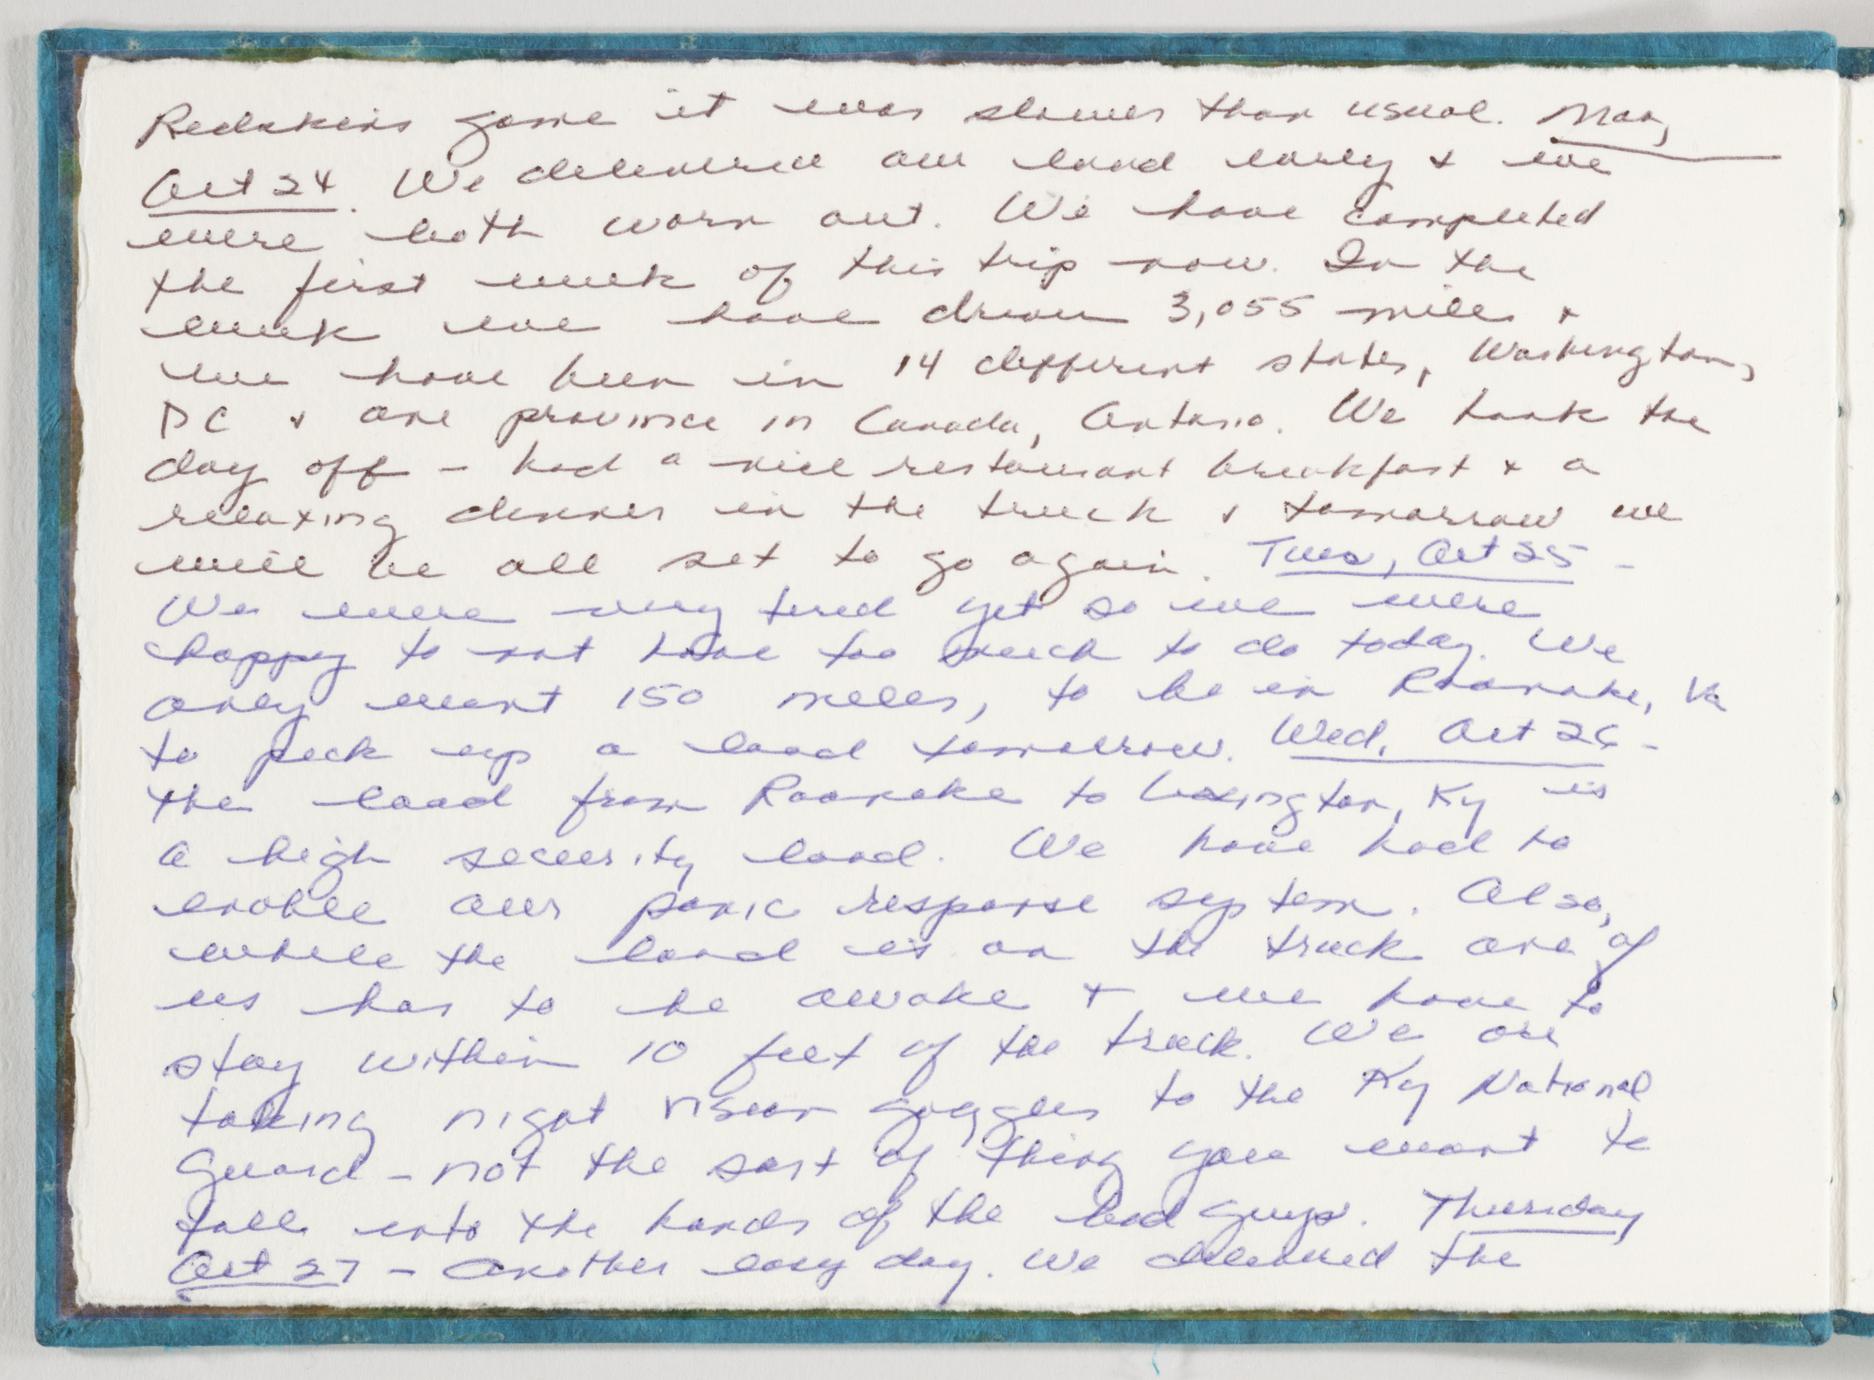 Redskins game it was slower than usual. Mon,
Oct 24. We delivered our load early + we
were both worn out. We have completed
the first week of this trip now. In the
week we have driven 3,055 miles +
we have been in 14 different states, Washington,
DC + one province in Canada, Ontario. We took the
day off - had a nice restaurant breakfast + a
relaxing dinner in the truck + tomorrow we
will be all set to go again. Tues, Oct 25 -
We were very tired yet so we were
happy to not have too much to do today. We
only went 150 miles, to be in Roanoke, Va
to pick up a load tomorrow. Wed, Oct 26 -
the load from Roanoke to Lexington, Ky is
a high security load. We have had to
enable our panic response system. Also,
while the load is on the truck one of
us has to be awake + we have to
stay within 10 feet of the truck. We are
taking night vision goggles to the Ky National
Guard - not the sort of thing you want to
fall into the hands of the bad guys. Thursday
Oct 27 - another easy day. We delivered the